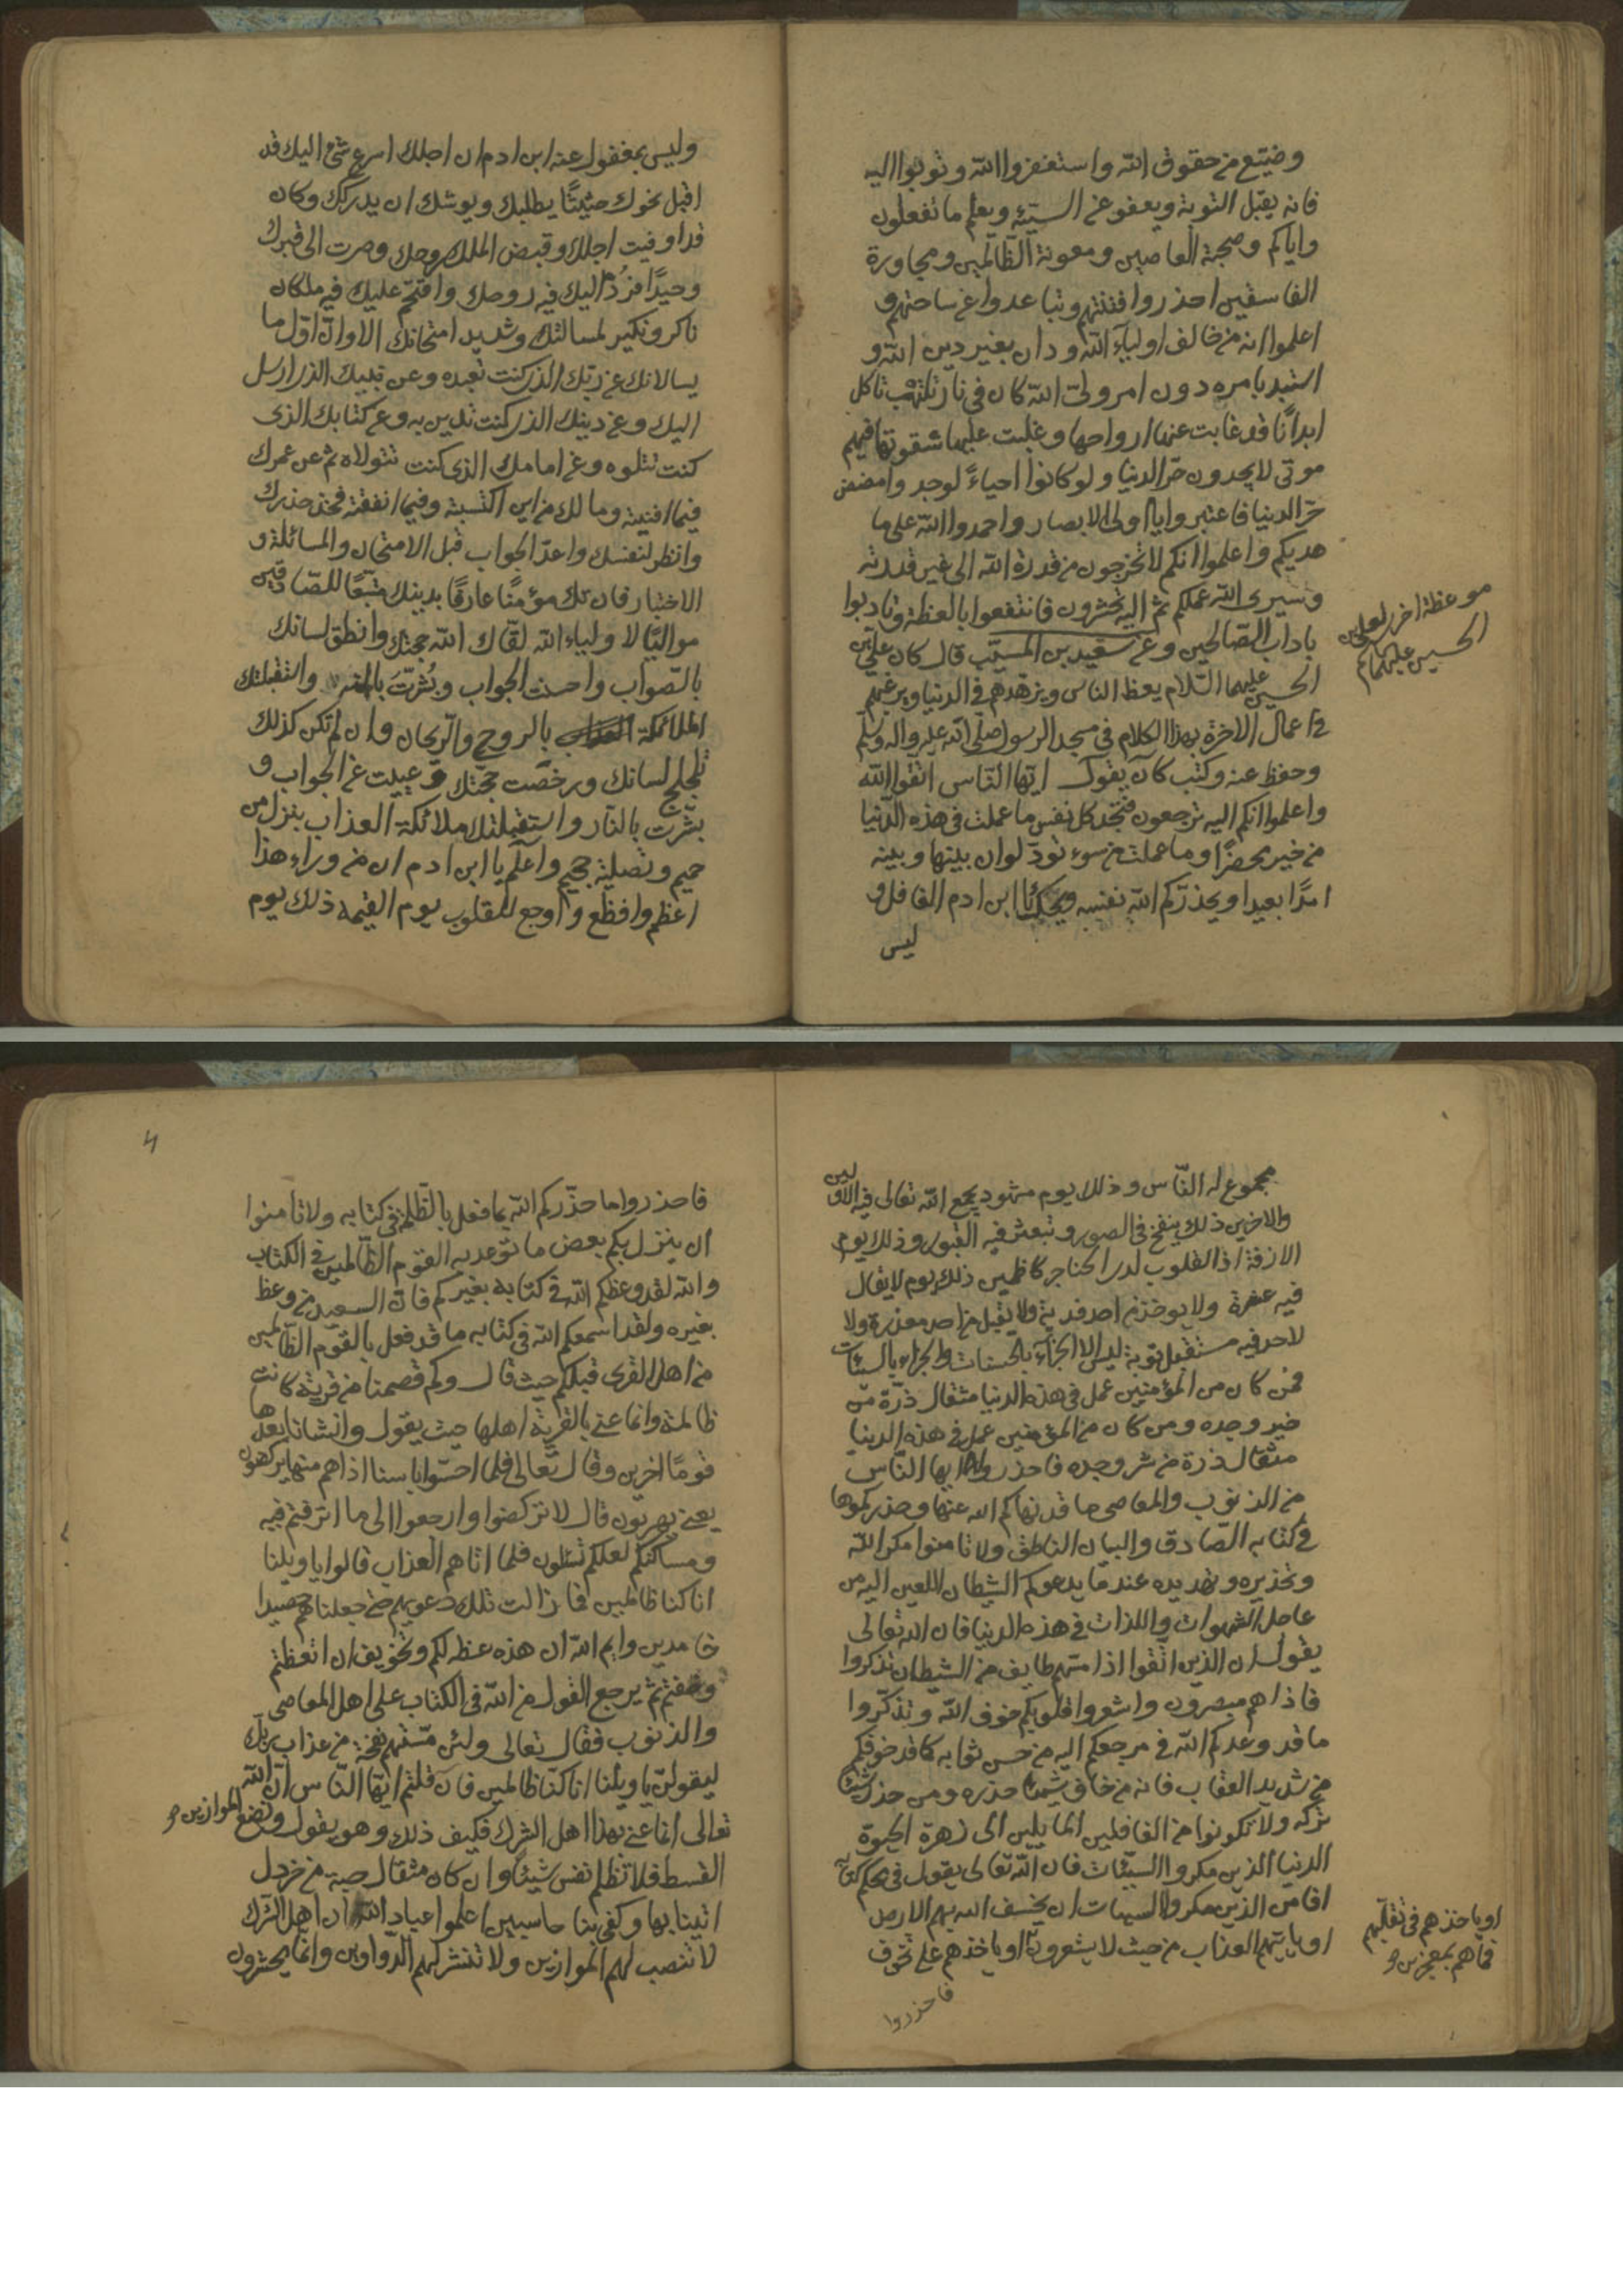 وضيّع من حقوق الله واستغفروا الله وتوبوا اليه
فانه يقبل التوبة ويعفو عن السيّئه ويعلم ما تفعلون
واياكم وصحبة العاصين ومعونة الظالمين ومجاورة
الفاسقين احذروا فتنتهم وتباعدوا عن ساحتهم و
اعلموا انه من خالف اولياء الله ودان بغير دين الله و
استبد بامره دون امر وليّ الله كان في نار تلتهب تاكل
ابدانًا قد غابت عنها ارواحها وغلبت عليها شقوتها فهم
موتى لا يجدون حرّ النار ولو كانوا احياءً لوجدوا مضض
حرّ الدنيا فاعتبروا يا اولى الابصار واحمدوا الله على ما
هديكم واعلموا انكم لا تخرجون من قدرة الله الى غير قدرته
وسيرى الله عملكم ثم اليه تحشرون فانتفعوا بالعظة وتادبوا
باداب الصّالحين وعن سعيد بن المسيّب قال كان علي بن
موعظة اخرى لعلي بن
الحسين عليهما السلام
الحسين عليهما السّلام يعظ الناس ويزهّدهم في الدنيا ويرغبهم
في اعمال الاخرة بهذا الكلام في مسجد الرسول صلّى الله عليه واله وسلّم
وحفظ عنه وكتب كان يقول ايّها النّاس اتقوا الله
واعلموا انكم اليه ترجعون فتجد كل نفس ما عملت في هذه الدّنيا
من خير محضرًا وما عملت من سوء تودّ لو ان بينها وبينه
امدًا بعيدا ويحذّركم الله نفسه ويحك يا ابن ادم الغافل و
ليس
وليس بمغفول عنه ابن ادم ان اجلك اسرع شئ اليك قد
اقبل نحوك حثيثًا يطلبك ويوشك ان يدركك وكان
قد اوفيت اجلك وقبض الملك روحك وصرت الى قبرك
وحيدًا فرُدّ اليك فيه روحك واقتحم عليك فيه ملكان
ناكر ونكير لمسالتك وشديد امتحانك الا وانّ اوّل ما
يسالانك عن ربّك الذي كنت تعبده وعن نبيك الذي ارسل
اليك وعن دينك الذي كنت تدين به وعن كتابك الذى
كنت تتلوه وعن امامك الذى كنت تتولاه ثم عن عمرك
فيما افنيته ومالك من اين اكتسبته وفيما انفقته فخذ حذرك
وانظر لنفسك واعدّ الجواب قبل الامتحان والمسائلة و
الاختبار فان تك مؤمنًا عارفًا بدينك متبعًا للصّادقين
مواليًا لاولياء الله لقّاك الله حجتك وانطق لسانك
بالصّواب واحسنت الجواب وبُشّرتَ والتقبلتك
الملائكة بالروح والرّيحان وان لم تكن كذلك
تلجلج لسانك ورخصت حجّتك وعييت عن الجواب و
بشّرت بالنّار واستقبلتك ملائكة العذاب بنزل من
حميم وتصلية جحيم واعلم يا ابن ادم ان من وراء هذا
اعظم وافظع واوجع للقلوب يوم القيمه ذلك يوم
مجموع له النّاس وذلك يوم مشهود يجمع الله تعالى فيه الاولين
والاخرين ذلك ينفخ في الصور وتبعثر فيه القبور وذلك يوم
الازفة اذ القلوب لدى الحناجر كاظمين ذلك يوم لا يقال
فيه عثرة ولا يوخذ من احد فدية ولا يقبل من احد معذرة ولا
لاحد فيه مستقبل توبة ليس الا الجزاء بالحسنات والجزاء بالسيئات
فمن كان من المؤمنين عمل في هذه الدنيا مثقال ذرّة من
خير وجده ومن كان من المؤمنين عمل في هذه الدنيا
مثقال ذرة من شر وجده فاحذروا ايها النّاس
من الذنوب والمعاصي ما قد نهاكم الله عنها وحذركموها
في كتابه الصّادق والبيان الناطق ولا تامنوا مكر الله
وتحذيره وتهديده عند ما يدعوكم الشيطان اللعين اليه من
عاجل الشهوات واللذات في هذه الدنيا فان الله تعالى
يقول ان الذين اتقوا اذا مسّهم طايف من الشيطان تذكروا
فاذا هم مبصرون واشعروا قلوبكم خوف الله وتذكّروا
ما قد وعدكم الله في مرجعكم اليه من حسن ثوابه كما قد خوفكم
من شديد العقاب فانه من خاف شيئًا حذره ومن حذر شيئًا
تركه ولا تكونوا من الغافلين المايلين الى زهرة الحيوة
الدنيا الذين مكروا السيّئات فان الله تعالى يقول في محكم كتابه
افامن الذين مكروا السيئات ان يخسف الله بهم الارض
او ياتيهم العذاب من حيث لا يشعرون او ياخذهم على تخوف
او ياخذهم في تقلّبهم
فما هم بمعجزين
فاحذروا
4
فاحذروا ما حذّركم الله بما فعل بالظّلمة في كتابه ولا تامنوا
ان ينزل بكم بعض ما توعد به القوم الظّالمين في الكتاب
والله لقد وعظكم الله في كتابه بغيركم فان السعيد من وعظ
بغيره ولقد اسمعكم الله في كتابه ما قد فعل بالقوم الظّالمين
من اهل القرى قبلكم حيث قال وكم قصمنا من قرية كانت
ظالمة وانما عنى بالقرية اهلها حيث يقول وانشانا بعدها
قومًا اخرين وقال تعالى فلما احسّوا باسنا اذا هم منها يركضون
يعنى يهربون قال لا تركضوا وارجعوا الى ما اترفتم فيه
ومساكنكم لعلكم تسئلون فلما اتاهم العذاب قالوا يا ويلنا
انا كنا ظالمين فما زالت تلك دعويهم حتى جعلناهم حصيدا
خامدين وايم الله ان هذه عظة لكم وتخويف ان اتعظتم
وخفتم ثم يرجع القول من الله في الكتاب على اهل المعاصى
والذنوب فقال تعالى ولئن مسّتهم نفحة من عذاب ربّك
ليقولنّ يا ويلنا انا كنّا ظالمين فان قلتم ايّها النّاس انّ الله
تعالى انما عنى بهذا اهل الشرك فكيف ذلك وهو يقول ونضع الموازين
القسط فلا تظلم نفس شيئًا وان كان مثقال حبة من خردل
اتينا بها وكفى بنا حاسبين اعلموا عباد الله ان اهل الشرك
لا تنصب لهم الموازين ولا تنشر لهم الدّواوين وانما يحشرون